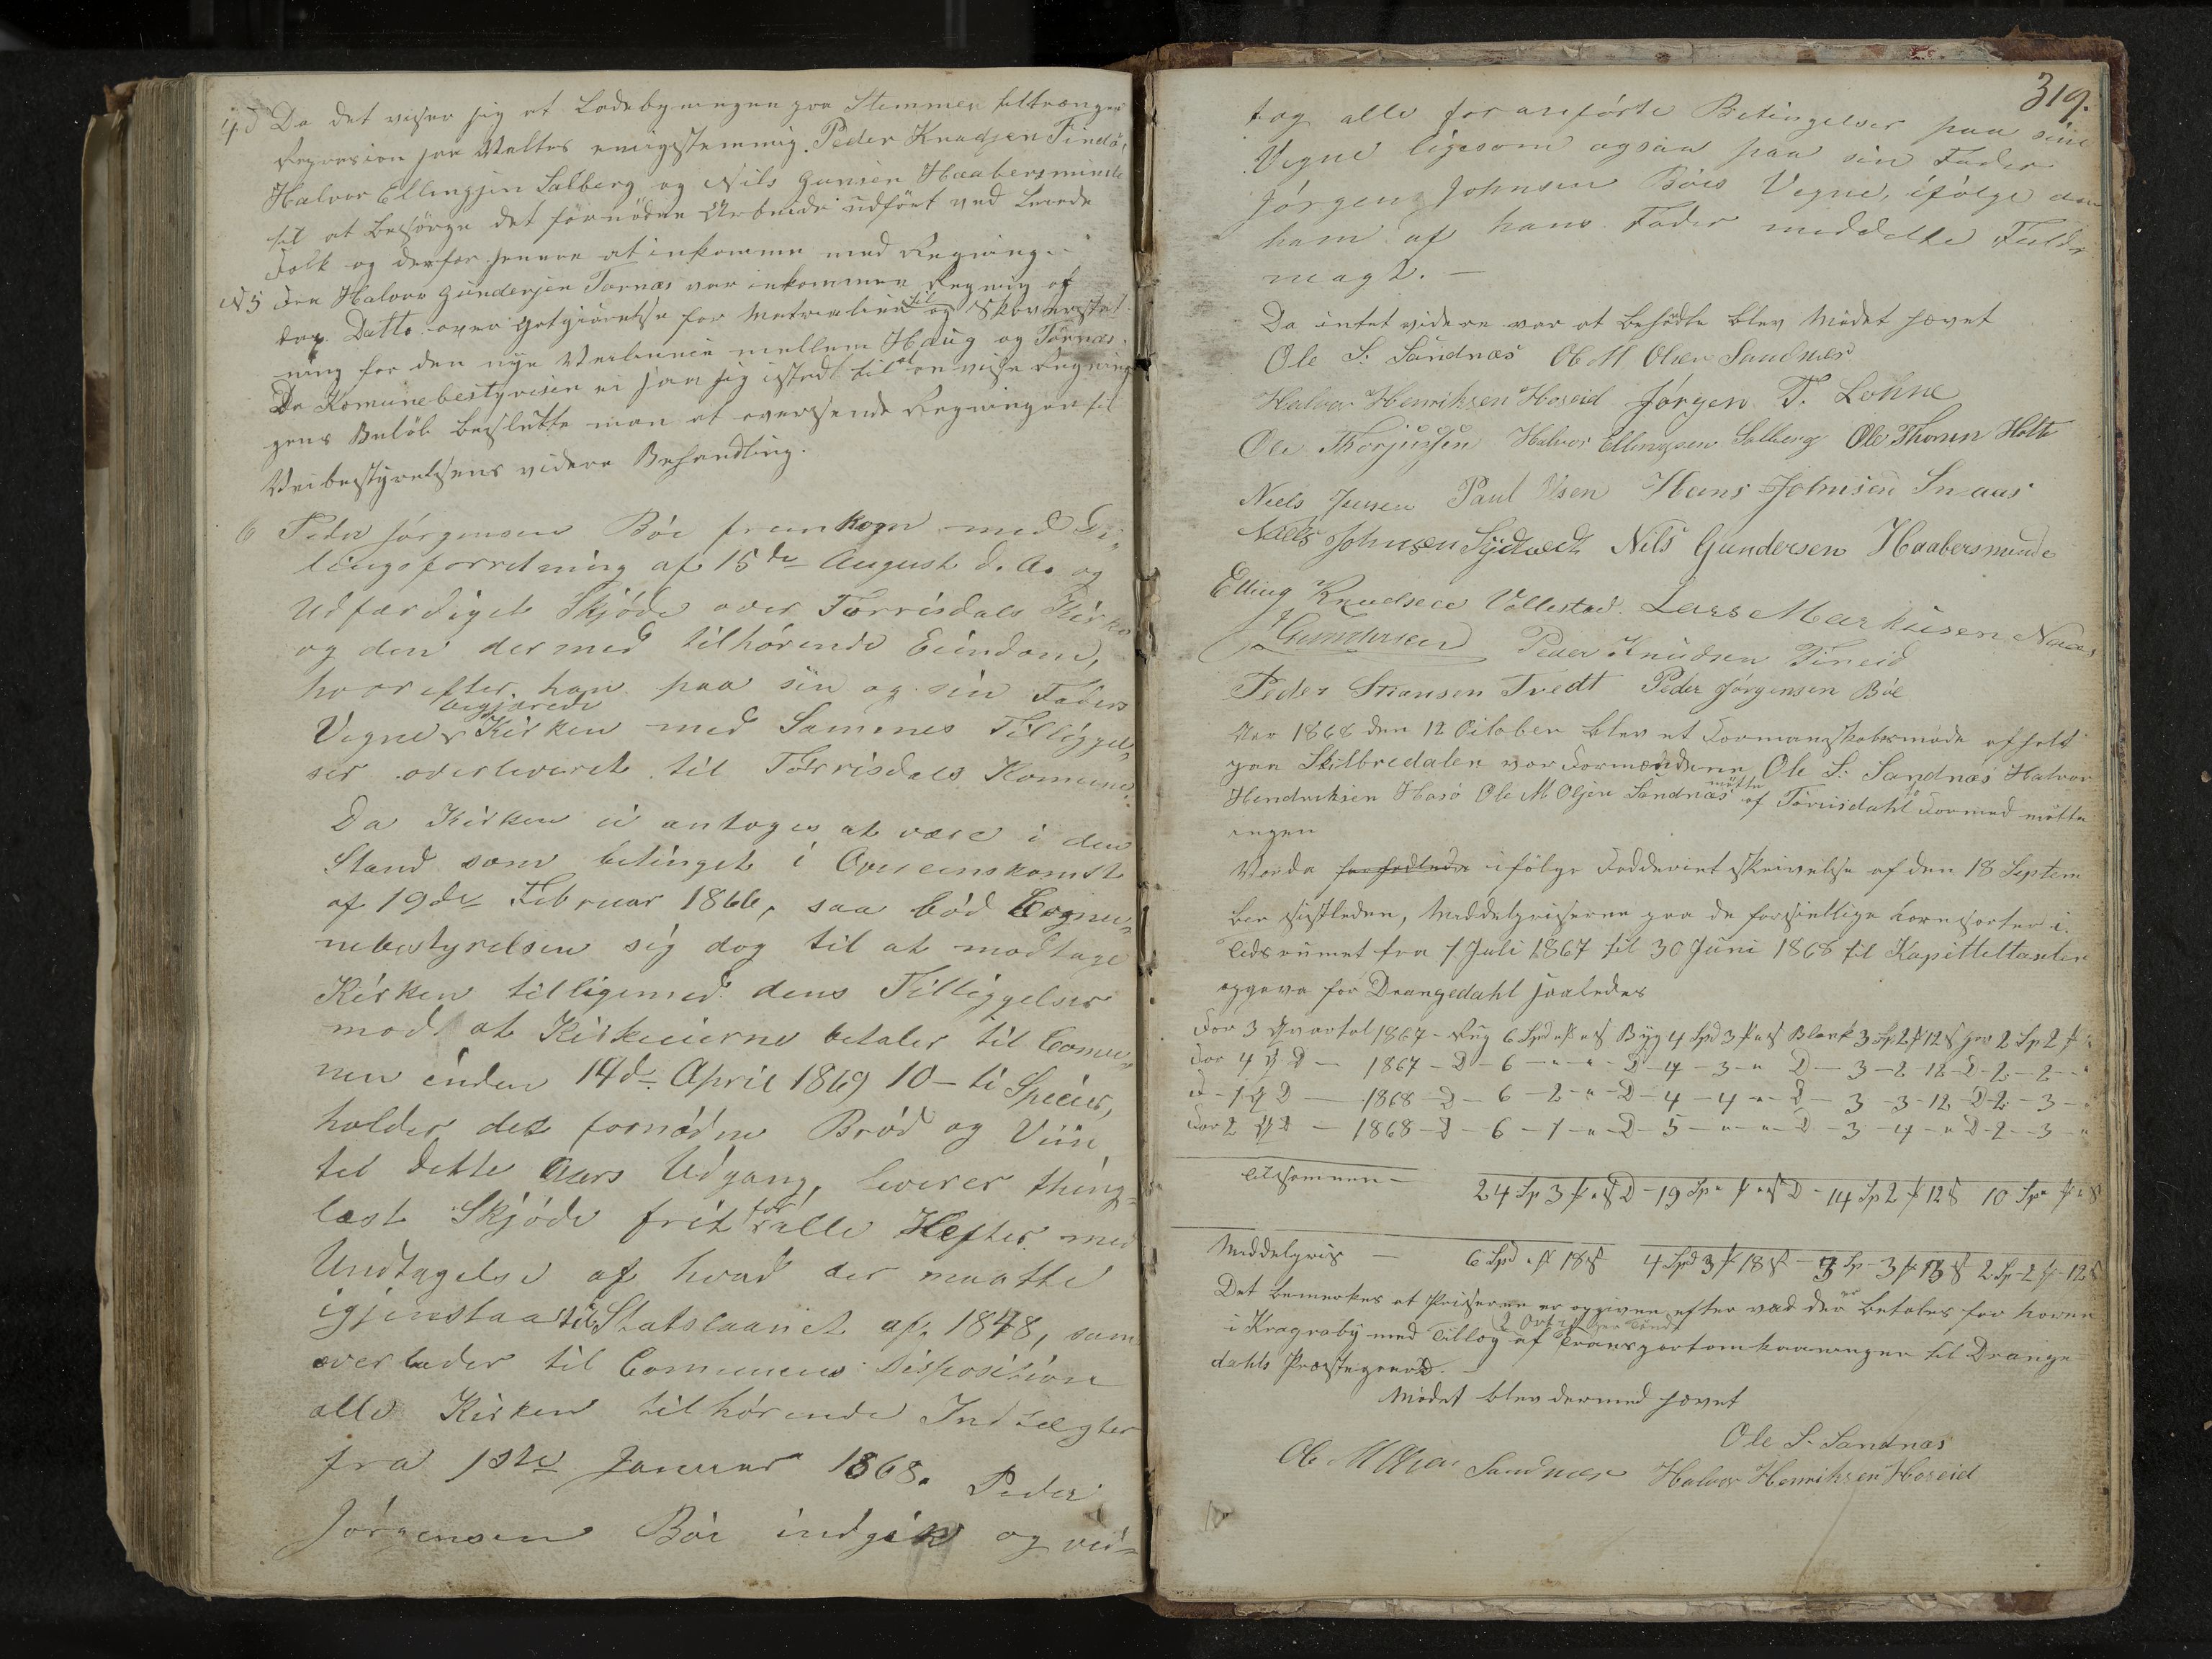 4. Da det viser sig at Ladebygningen paa Stemmen tiltrænger
Repration saa Valtes enigstemmig. Peder Knudsen Fineid,
Halvor Ellingsen Salberg og Nils Gunsen Haabersminde
til at besørge det fornødne Arbeide udført ved Leiede
Folk og derfor senere at inkomme med Regning.
N 5 Fra Halvor Gundersen Tornæs var inkommen Regning af
Datto over Gotgiørelse for Matrialier til og Skoverstat
ning for den nye Veilinie mellem Haug og Tornæs.
Da Komunebestyrelsen ei saa sig istad til at anvise Regnin
gens Beløb besluttte man at oversende Regningen til
Veibestyrelsens videre Behandling.
6 Peder Jørgensen Bøe fremkom med De-
lingsforretning af 15de August d. A. og
Udfærdiget Skjøde over Tørrisdals Kirke
og den dermed tilhørende Eiendom,
hvorefter han paa sin og sin Faders
Vegne begjærede Kirken med Sammes Tilliggel-
ser overleveret til Tørrisdals Komune.
Da Kirken ei antoges at være i den
Stand som betinget i Overeinskomst
af 19de Februar 1866, saa bød Comu-
nebestyrelsen sig dog til at modtage
Kirken tilligemed dens Tilliggelser
mod at Kirkeeierne betaler til Comu-
nen inden 14de April 1869 10 - ti Specier,
holder det fornødne Brød og Viin
til dette Aars Udgang, leverer thing-
læst Skjøde frit for alle Hefter med
Undtagelse af hvad der maatte
igjenstaa til Statslaanet af 1848, sam
overlader til Comunens Disposition
alle Kirken tilhørende Indtægter
fra 1ste Januar 1868. Peder
Jørgensen Bøe indgik og ved-
319.
tog alle foranførte Betingelser paa sine
Vegne ligesom ogsaa paa sin Fader
Jørgen Johnsen Bøes Vegne, ifølge den
ham af hans Fader meddelte Fuld-
magt. —
Da intet videre var at behandle blev Mødet hævet
Ole S. Sandnæs Ole M Olsen Sandnæs
Halvor Henriksen Hoseid Jørgen T. Lohne
Ole Thorjussen Halvor Ellingsen Salberg Ole Thorsen Holte
Niels Jensen Paul Olsen Hans Johnsen Snaas
Niels Johnsen Nils Gundersen Haabersminde
Elling Knudsen Vollestad. Lars Markusen Næas
J Gundersen Peder Knudsen Fineid
Peder Stiansen Tvedt Peder Jørgensen Bøe
Aar 1868 den 12 October blev et Formanskabsmøde afholt
paa Stilbredalen vor Formændene Ole S. Sandnæs Halvor
Hendriksen Hosø Ole M Olsen Sandnæs møtte af Tørrisdahls Formend møtte
ingen
Vorda ifølge Fodderiet skrivelse af den 18 Septem
ber sistleden, Middelpriserne paa de forsiellige kornsorter i
Tidsrumet fra 1 Juli 1867 til 30 Juni 1868 til Kapitteltaxten
opgava for Drangedahl saaledes
For 3 Qvartal 1867 - Rug 6 Spd " " Byg 4 Spd 3 " Blank 3 Sp 2 12 2 Sp 2
For 4 Q D — 1867 - D - 6 - " " - D - 4 - 3 - " D - 3 - 2 12 - D - 2 - 2 - "
D - 1 Q D — 1868 - D - 6 - 2 - " - D - 4 - 4 - " - D - 3 - 3 - 12 - D - 2 - 3 - "
For 2 Q D — 1868 - D - 6 - 1 - " - D - 5 - " - " - D - 3 - 4 - " D - 2 - 3 - "
tilsammen — 24 Sp 3 D - 19 Sp D - 14 Sp 2 12 10 Sp
Middelpris — 6 Spd 18 4 Spd 3 18 - 3 Sp - 3 13 2 Sp - 2 - 12
Det bemærkes at Priserne er opgiven efter vad der er betales for kornen
i Kragrøby med Tillæg af 2 Ort pr Tønde Transportomkaaningen til Drange
dahls Præstegaard. —
Mødet blev dermed hævet
Ole S. Sandnæs
Ole M Olsen Sandnæs Halvor Henriksen Hoseid